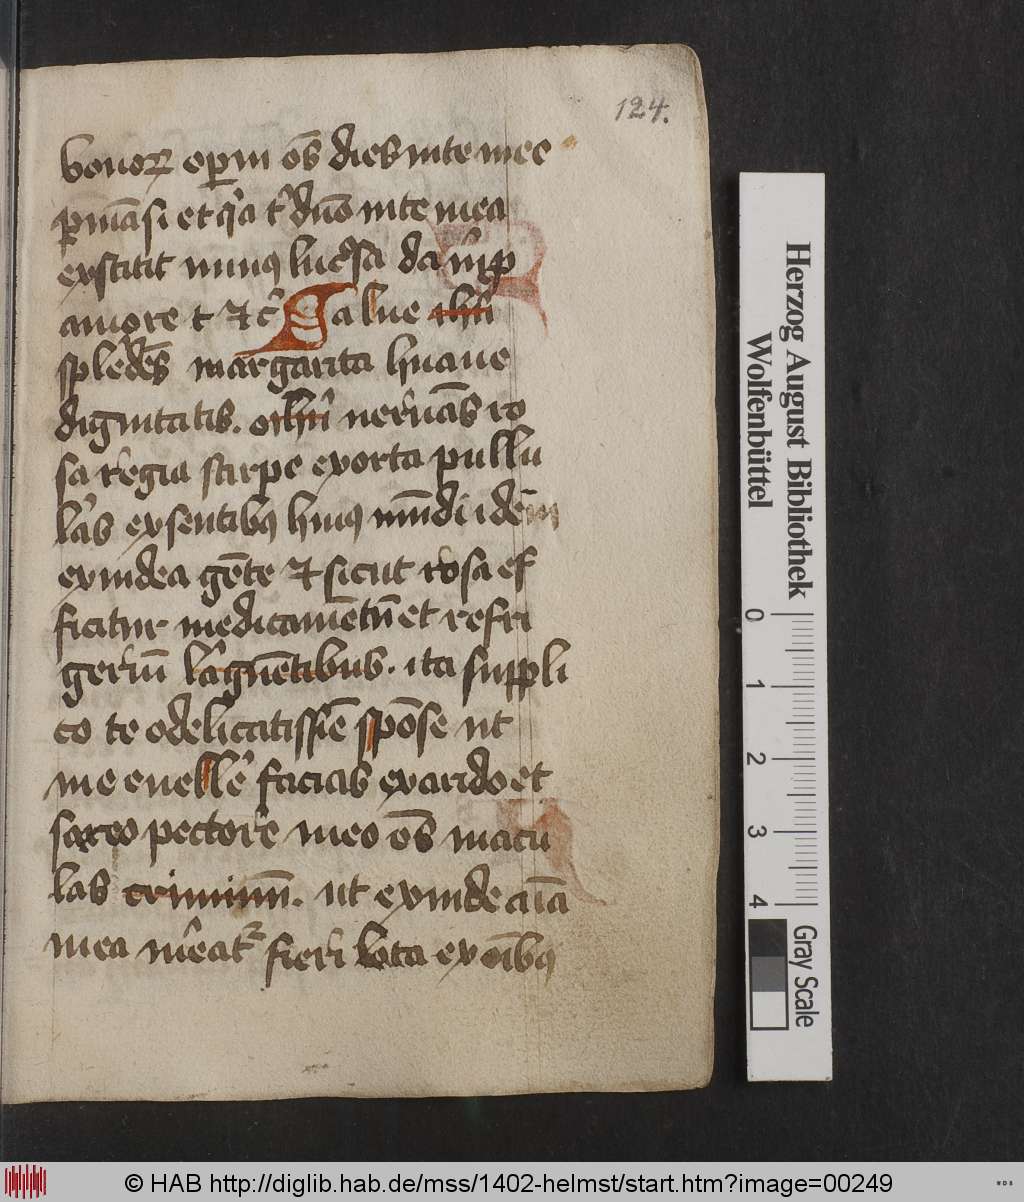 124.
bonoꝝ oꝑm oēs dies in te mee
ꝑmāsi et qͥa tͥ dño in te mea
exstitit minꝰ lucͦsa da
amore t ⁊ cͥ Salue ihū
splēdēs margarita huaue
dignitatis. o ihū nerͥuās ro
sa rͥegia stirpe exorta pullu
lās ex sentibꝰ huiꝰ mūdi idē
exinde a gēte ⁊ sicut rosa ef
ficitur medicamētū et refri
geriū lāguētibus. ita suppli
co te o delicatissīe spōse ut
me euellē facias ex arido et
saxeo pectore meo oēs macu
las criminū. ut exinde aīa
mea mͤeatᷣ fieri lota ex oībꝰ
Herzog August Bibliothek
Wolfenbüttel
0 1 2 3 4
Gray Scale
© HAB http://diglib.hab.de/mss/1402-helmst/start.htm?image=00249